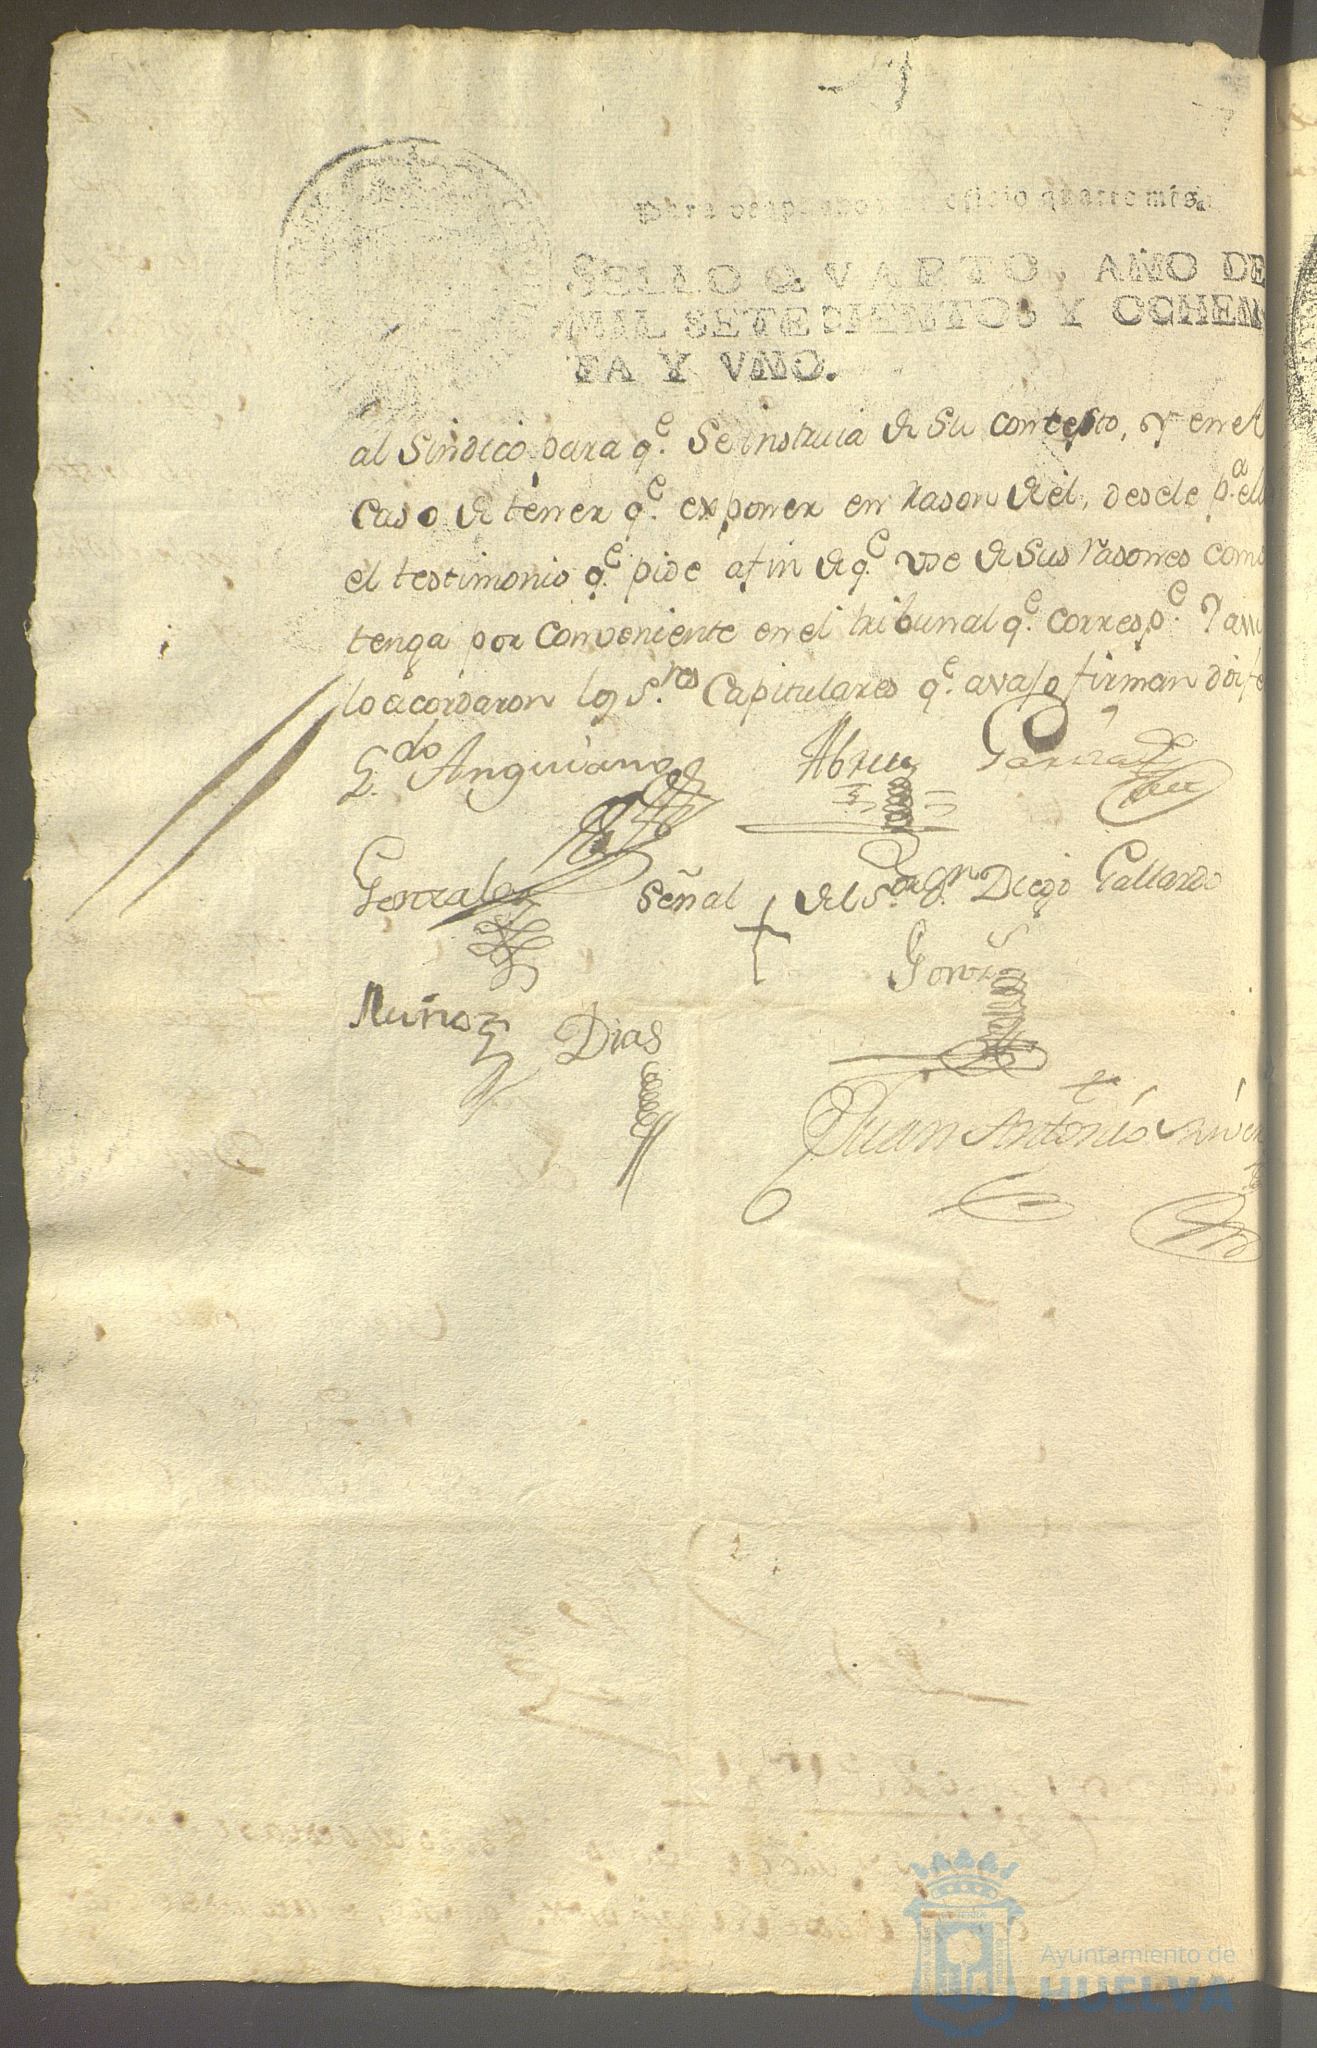 Para despachos de oficio quatro mrs.
SELLO QVARTO, AÑO DE
MIL SETECIENTOS Y OCHEN
TA Y VNO.
al Sindico para q.e Se instruia de Su contesto, y en el
Caso de tener q.e exponer en rason de el, desele p.a ello
el testimonio q.e pide afin de q.e use de Sus rasones como
tenga por conveniente en el tribunal q.e corresp.e Y assi
lo acordaron los S.res Capitulares q.e avajo firman doi fe
L.do Anguiano Abreu Garrido
Gonzales Señal del S.or D.n Diego Gallardo
Muñoz Dias
Juan Antonio
Ayuntamiento de
HUELVA